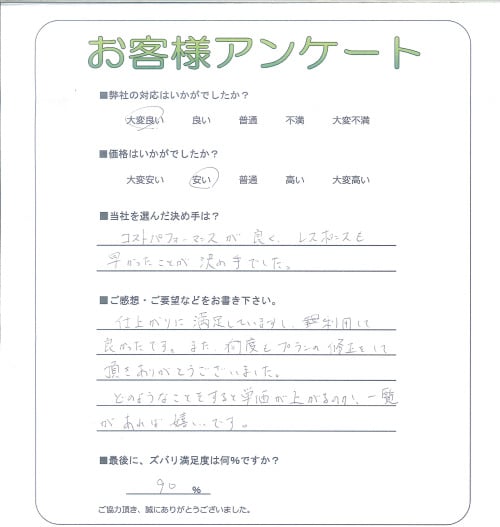 お客様アンケート
■弊社の対応はいかがでしたか？
大変良い 良い 普通 不満 大変不満
■価格はいかがでしたか？
大変安い 安い 普通 高い 大変高い
■当社を選んだ決め手は？
コストパフォーマンスが良く、レスポンスも
早かったことが決め手でした。
■ご感想・ご要望などをお書き下さい。
仕上がりに満足していますし、利用して
良かったです。また、何度もプランの修正をして
頂きありがとうございました。
どのようなことをすると単価が上がるのか、一覧
があれば嬉しいです。
■最後に、ズバリ満足度は何％ですか？
90 %
ご協力頂き、誠にありがとうございました。